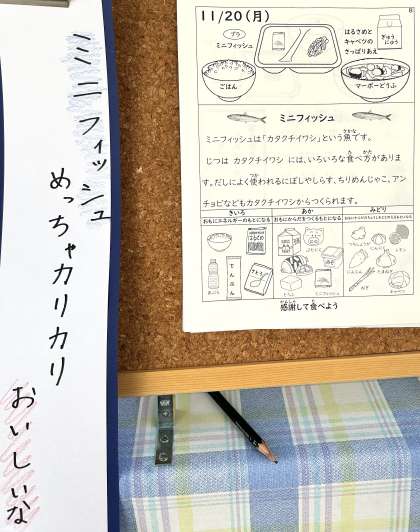 ミニフィッシュ
めっちゃカリカリ
おいしいな
11/20(月)
プラ
ミニフィッシュ
はるさめと
キャベツの
さっぱりあえ
ぎゅう
にゅう
ごはん
マーボーどうふ
ミニフィッシュ
ミニフィッシュは「カタクチイワシ」という魚です。
さかな
じつは カタクチイワシ には、いろいろな食べ方がありま
た かた
す。だしによく使われるにぼしやしらす、ちりめんじゃこ、アン
つか
チョビなどもカタクチイワシからつくられます。
きいろ あか みどり
おもにエネルギーのもとになる おもにからだをつくるもとになる
でんぷん
さとう
感謝して食べよう
かんしゃ た